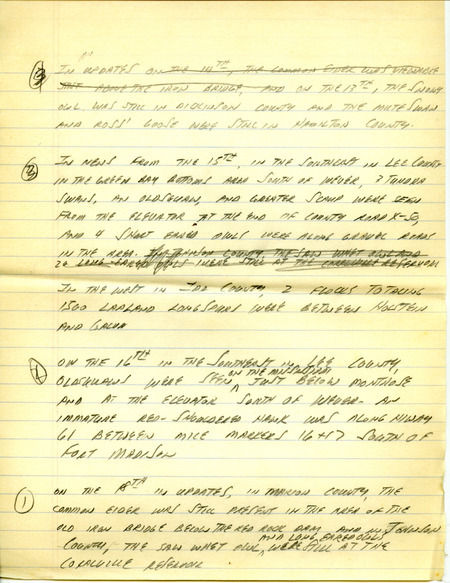 ③ IN UPDATES ON THE 14TH, THE COMMON EIDER WAS VIEWABLE
JUST ABOVE THE IRON BRIDGE, AND ON THE 17TH, THE SNOWY
OWL WAS STILL IN DICKINSON COUNTY AND THE MUTE SWAN
AND ROSS' GOOSE WERE STILL IN HAMILTON COUNTY.
② IN NEWS FROM THE 15TH, IN THE SOUTHEAST IN LEE COUNTY
IN THE GREEN BAY BOTTOMS AREA SOUTH OF WEVER, 7 TUNDRA
SWANS, AN OLDSQUAW, AND GREATER SCAUP WERE SEEN
FROM THE ELEVATOR AT THE END OF COUNTY ROAD X-
AND 4 SHORT EARED OWLS WERE ALONG GRAVEL ROADS
IN THE AREA. IN JOHNSON COUNTY, THE SAW WHET OWL AND
20 LONG-EARED OWLS WERE STILL AT THE CORALVILLE RESERVOIR
IN THE WEST IN IDA COUNTY, 2 FLOCKS TOTALING
1500 LAPLAND LONGSPURS WERE BETWEEN HOLSTEIN
AND GALVA
① ON THE 16TH IN THE SOUTHEAST IN LEE COUNTY,
OLDSQUAWS WERE SEEN ON THE MISSISSIPPI JUST BELOW MONTROSE
AND AT THE ELEVATOR SOUTH OF WEVER. AN
IMMATURE RED-SHOULDERED HAWK WAS ALONG HIWAY
61 BETWEEN MILE MARKERS 16+17 SOUTH OF
FORT MADISON
① ON THE 18TH IN UPDATES, IN MARION COUNTY, THE
COMMON EIDER WAS STILL PRESENT IN THE AREA OF THE
OLD IRON BRIDGE BELOW THE RED ROCK DAM, AND IN JOHNSON
COUNTY, THE SAW WHET OWL AND LONG EARED OWLS WERE STILL AT THE
CORALVILLE RESERVOIR